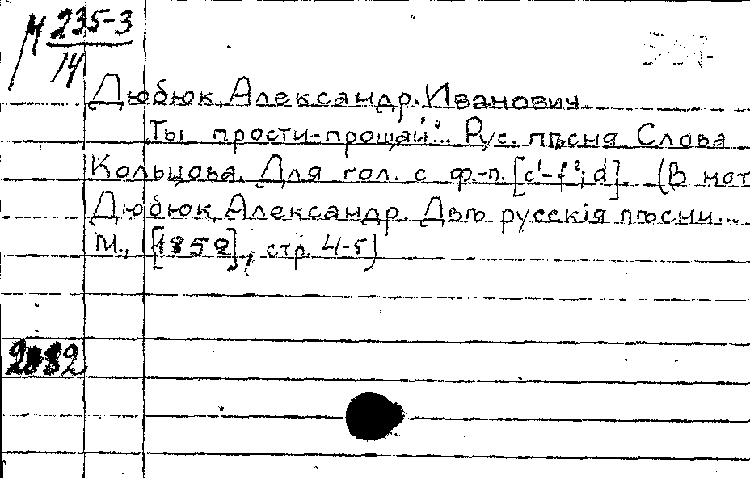 М 235-3
14
Дюбюк, Александр Иванович
"Ты прости-прощай"... Рус. пѣсня Слова
Кольцова. Для гол. с ф-п. [c¹-f²; d]. (В нот
Дюбюк, Александр. Двѣ русскія пѣсни...
М., [1852], стр. 4-5)